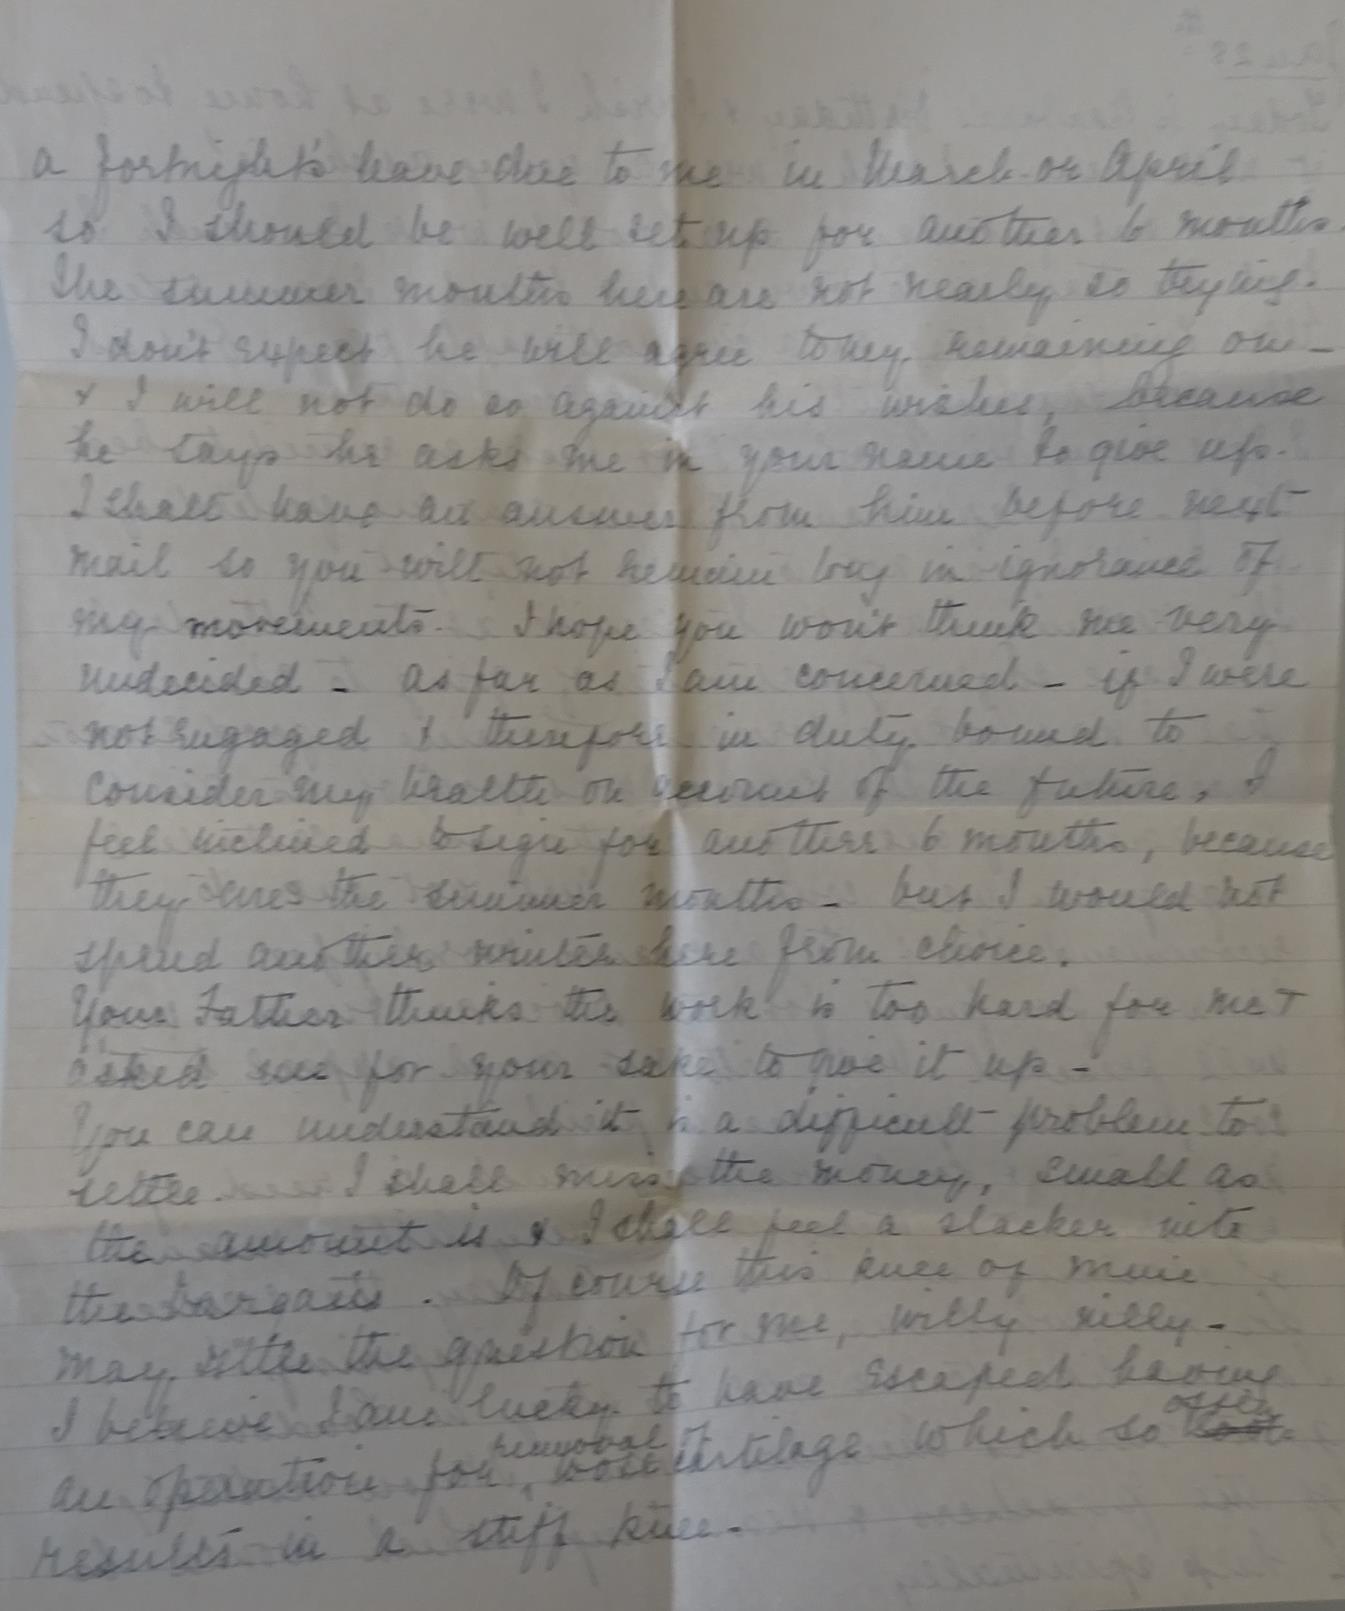 a fortnight's leave due to me in March or April
so I should be well set up for another 6 months.
The summer months here are not nearly so trying.
I don't expect he will agree to my remaining on -
& I will not do so against his wishes, because
he says he asks me in your name to give up.
I shall have an answer from him before next
mail so you will not remain long in ignorance of
my movements. I hope you won't think me very
undecided - as far as I am concerned - if I were
not engaged & therefore in duty bound to
consider my health on account of the future, I
feel inclined to sign for another 6 months, because
they are the summer months - but I would not
spend another winter here from choice.
Your Father thinks the work is too hard for me &
asked me for your sake to give it up -
You can understand it is a difficult problem to
settle. I shall miss the money, small as
the amount is & I shall feel a slacker into
the bargain. Of course this knee of mine
may settle the question for me, willy nilly -
I believe I am lucky to have escaped having
an operation for removal of cartilage which so often
results in a stiff knee.